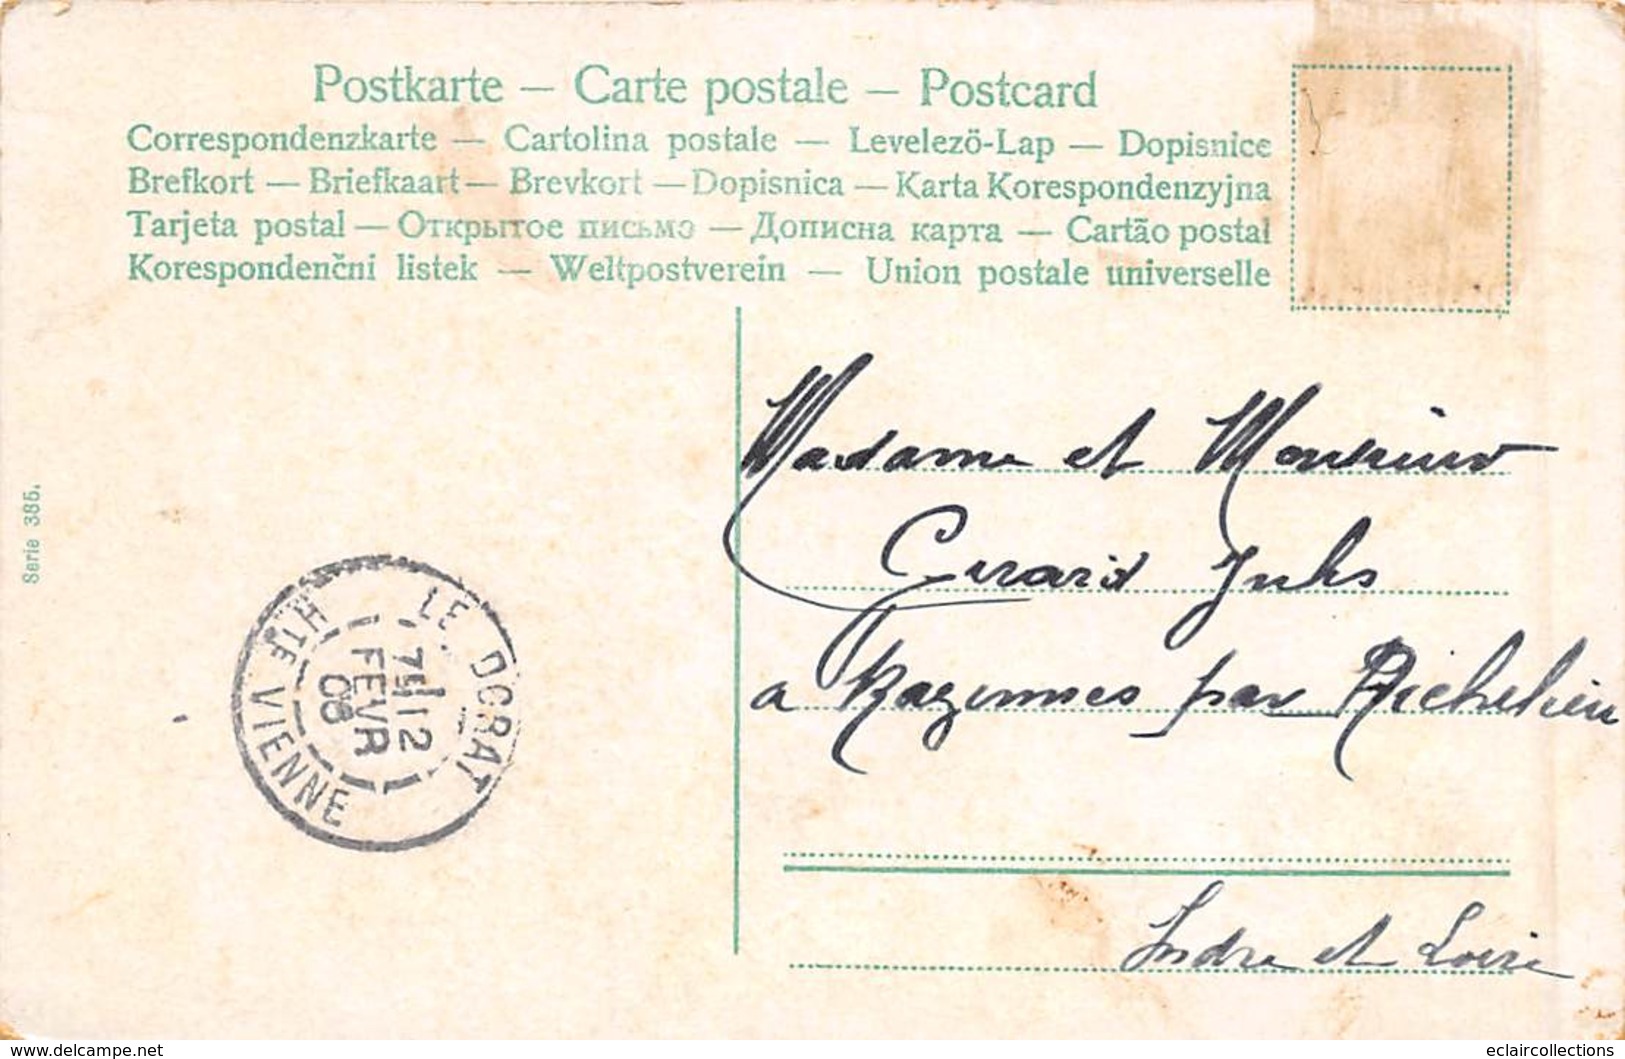 Postkarte — Carte postale — Postcard
Correspondenzkarte — Cartolina postale — Levelezö-Lap — Dopisnice
Brefkort — Briefkaart — Brevkort — Dopisnica — Karta Korespondenzyjna
Tarjeta postal — Открытое письмо — Дописна карта — Cartão postal
Korespondenční listek — Weltpostverein — Union postale universelle
Madame et Monsieur
Gerard Jules
a Razinnes par Richelieu
Indre et Loire
Serie 385.
LE DORAT
HTE VIENNE
12
FEVR
08
www.delcampe.net
eclaircollections